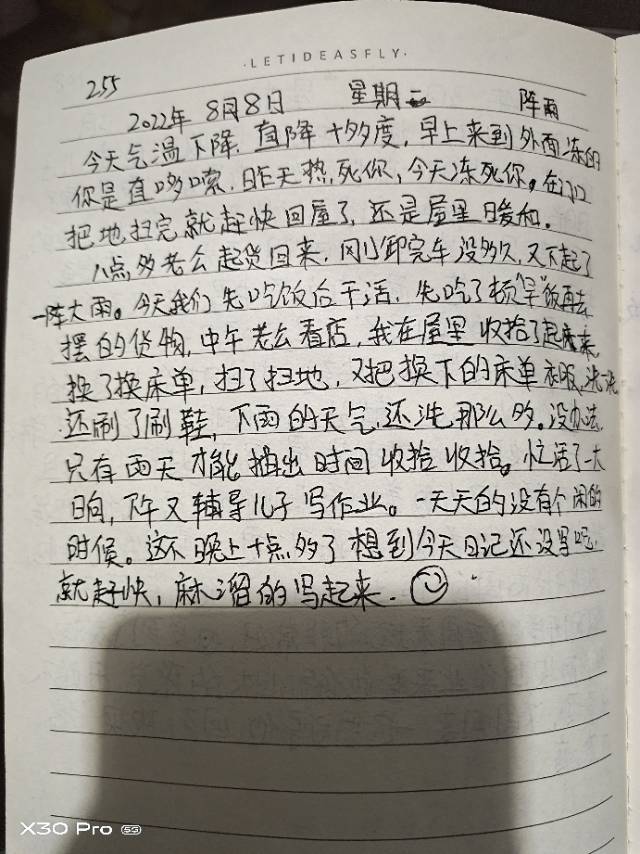 ·LETIDEASFLY·
255
2022年 8月8日 星期一 阵雨
今天气温下降,直降十多度,早上来到外面冻的
你是直哆嗦,昨天热死你,今天冻死你。在门口
把地扫完就赶快回屋了,还是屋里暖和。
八点多老么起货回来,刚卸完车没多久,又下起了
一阵大雨。今天我们先吃饭后干活,先吃了顿"早"饭再去
摆的货物,中午老么看店,我在屋里收拾了起来,
换了换床单,扫了扫地,又把换下的床单衣服洗洗
还刷了刷鞋,下雨的天气,还洗那么多。没办法,
只有雨天才能抽出时间收拾收拾。忙活了一大
日向,下午又辅导儿子写作业。一天天的没有个闲的
时候。这不晚上十点多了想到今天日记还没写呢,
就赶快,麻溜的写起来.
X30 Pro 5G